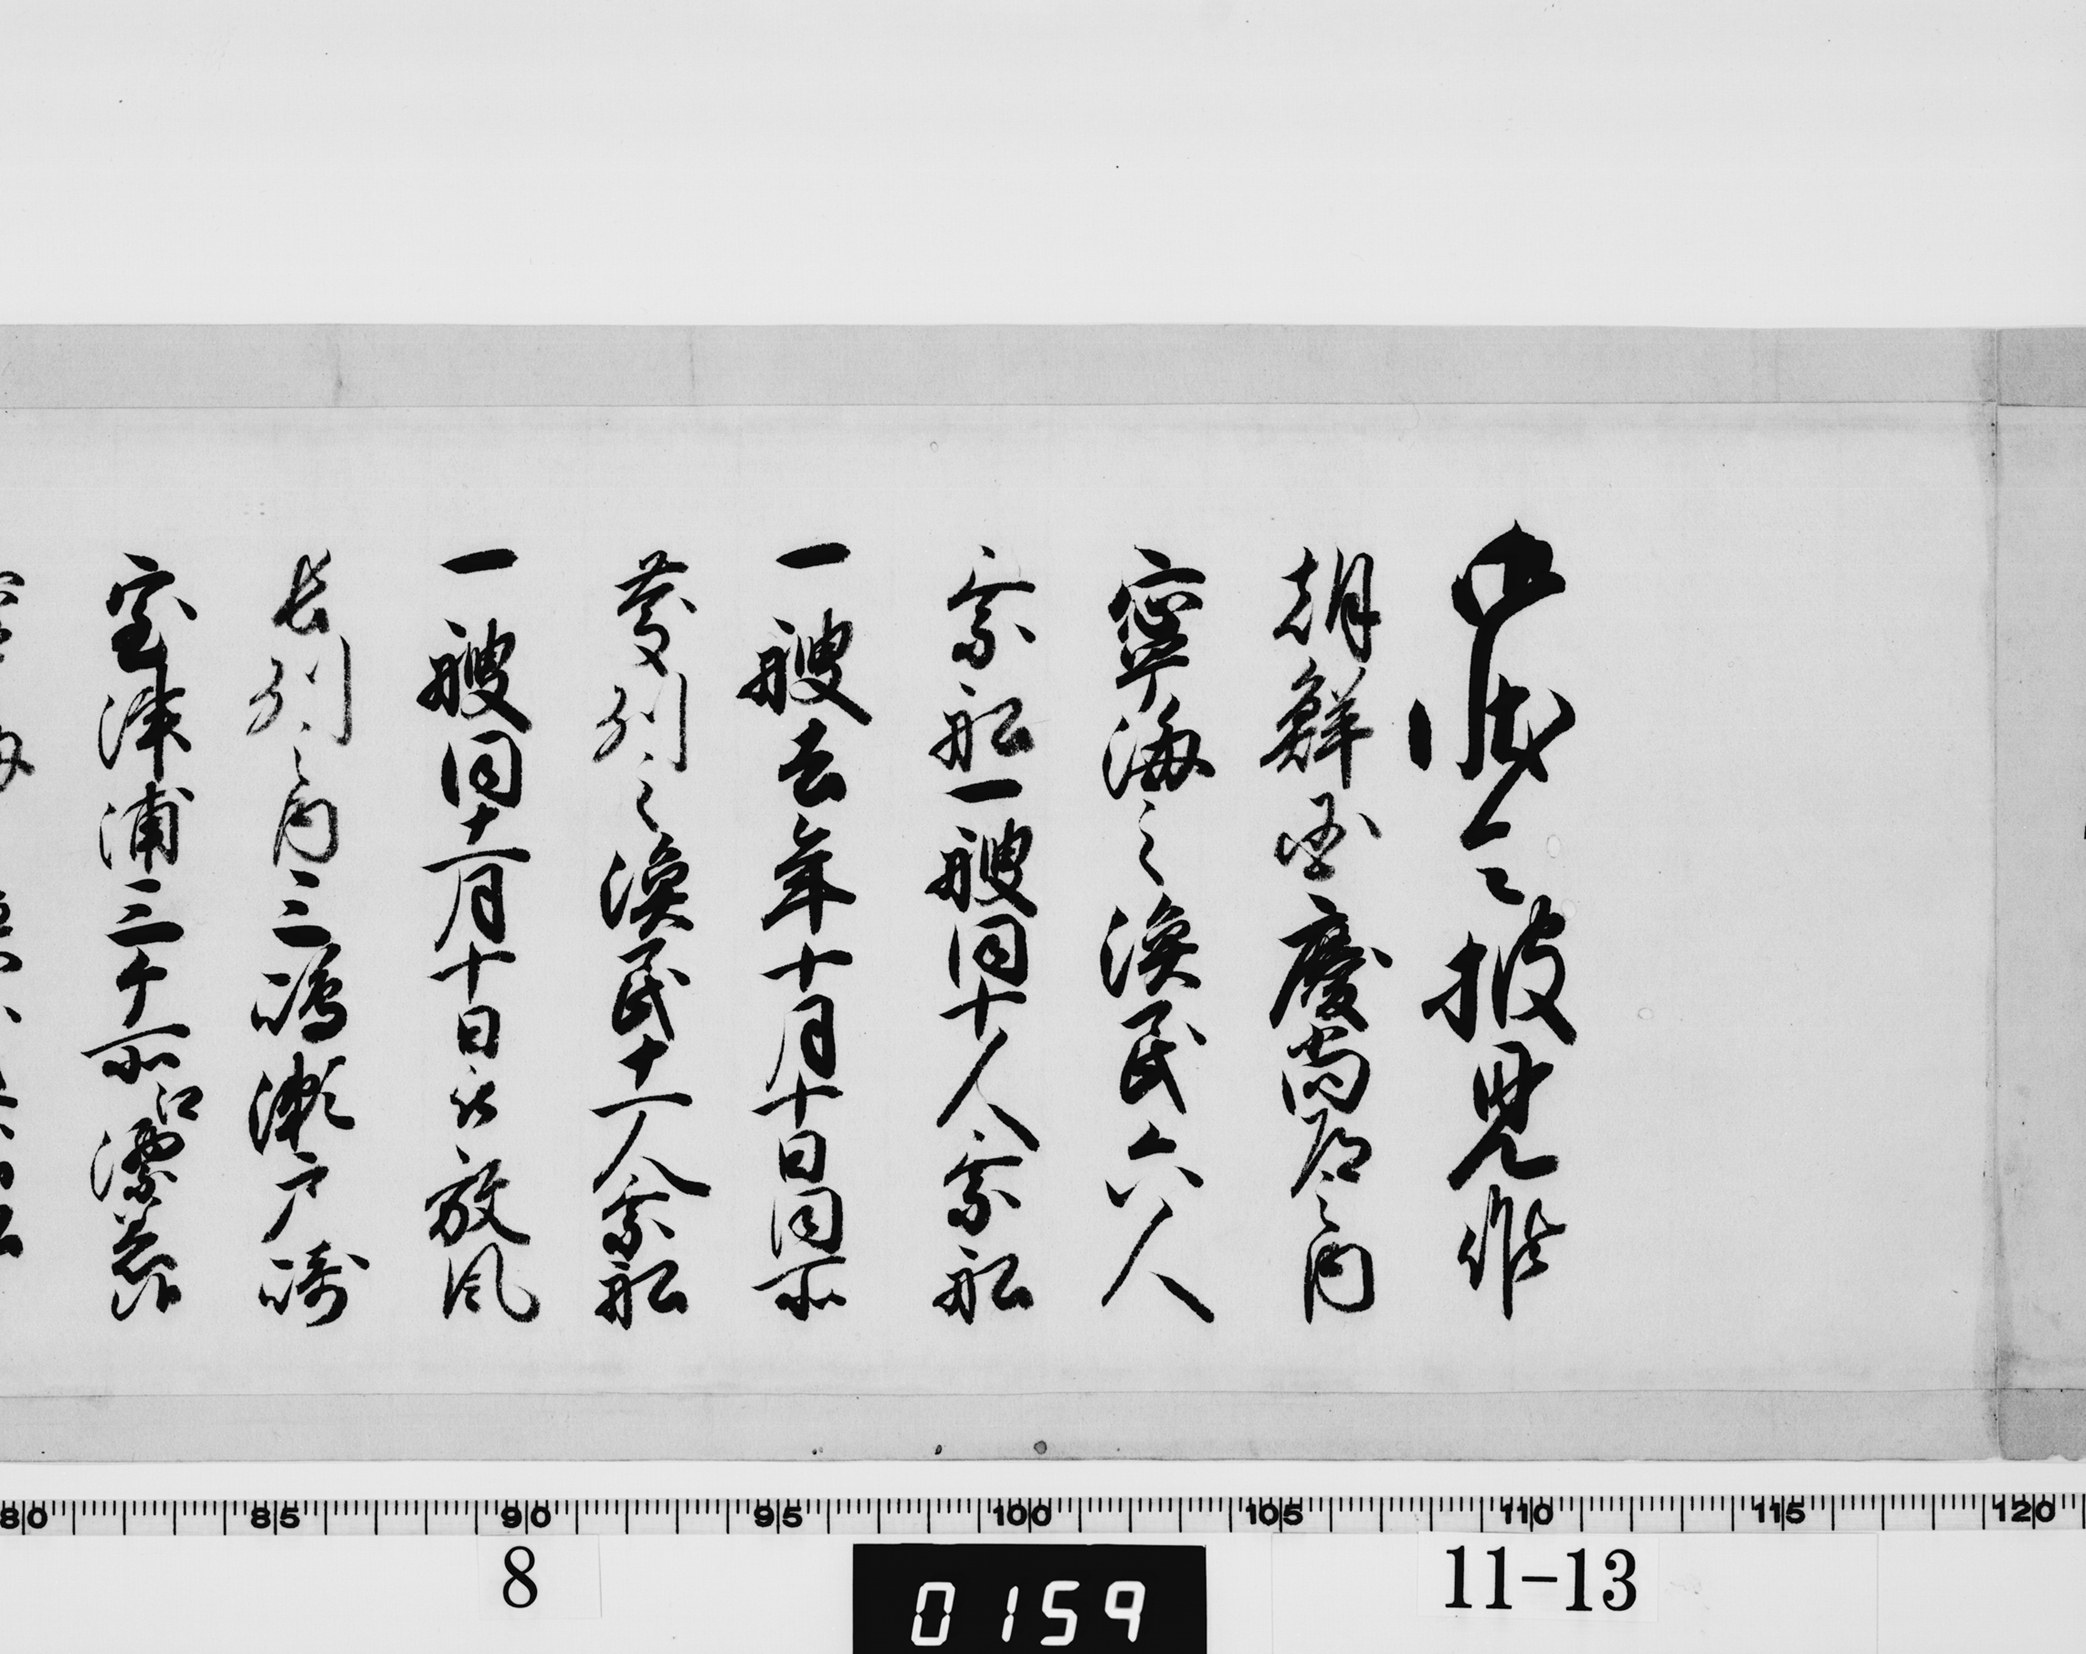 御状令披見候
朝鮮国慶尚道之内
寧海之漁民六人
乗船一艘同十人乗船
一艘去年十月十日同所
蔚列之漁民十一人乗船
一艘同十一月十日被放風
長列之内三嶋瀬戸崎
室津浦三ケ所江漂着
80 85 90 95 100 105 110 115 120
8 0159 11-13